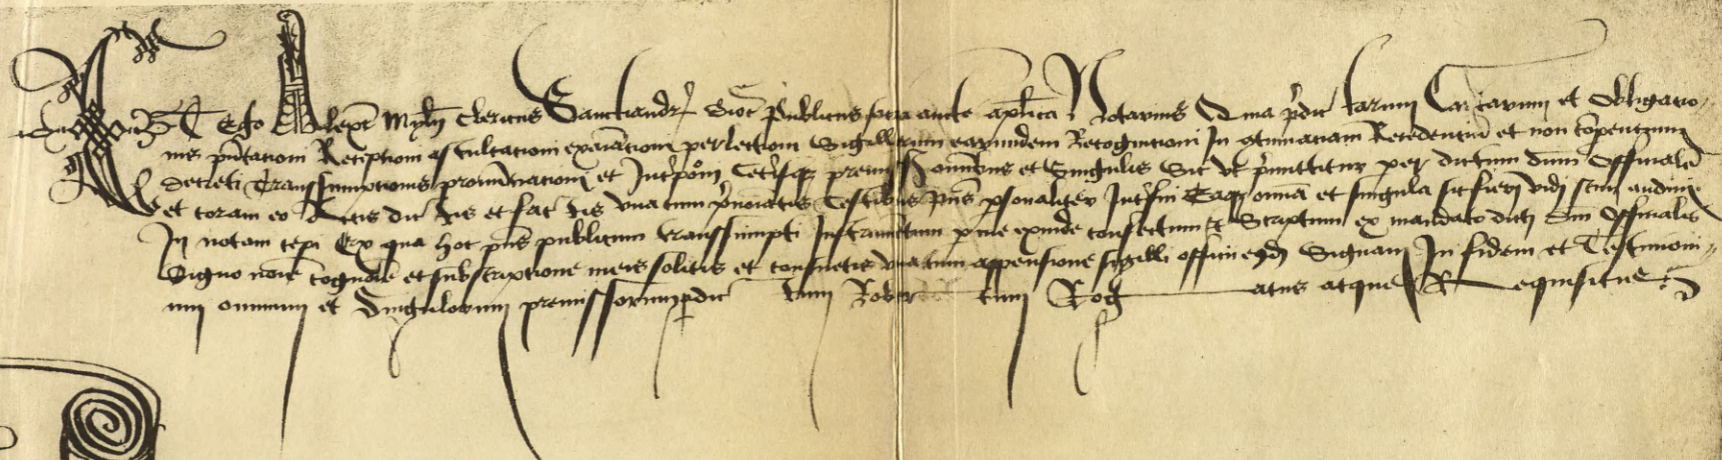 ET Ego Alexr Myln Clericus Sanctiandr dioc publicus sacra aucte aplica Notarius Quia pdictarum Cartarum et Obligatio-
nis pntationi Receptioni ascultationi examinationi perlectioni Sigillorum earundem Recognitioni In contumatiam Recedentium et non comperentium
decreti Transsumptionis pronunctiationi et Interponi Ceterisque premissis omnibus et Singulis Sic vt premittitur per dictum dnm Officialem
et coram eo Actis dictis et factis vnacum prenoiatis Testibus pns psonaliter Interfui Eaque omnia et singula sic fieri vidi sciui et audiui
In notam cepi Ex qua hoc pns publicum transsumpti Instrumentum p me exinde confectum et Scriptum ex mandato dicti dni Officialis
Signo noie cognoie et subscriptione meis solitis et consuetis vnacum appensione sigilli officii eiusdem Signaui In fidem et Testimoni-
um omnium et Singulorum premissorum pdictum Robertum Rogatus atque Requisitus